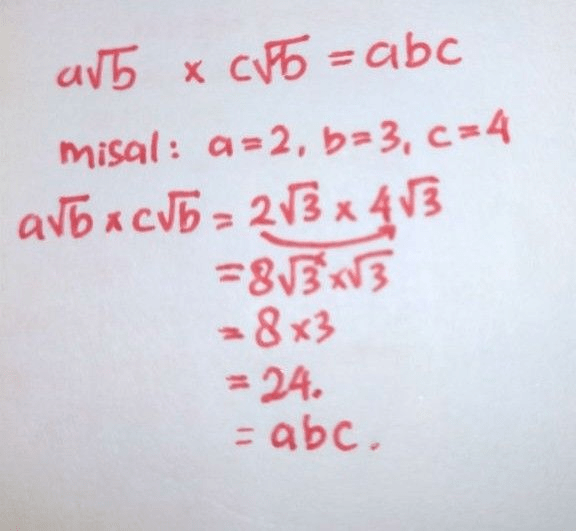 a√b x c√b = abc
misal: a=2, b=3, c=4
a√b x c√b = 2√3 x 4√3
= 8√3 x √3
= 8 x 3
= 24.
= abc.